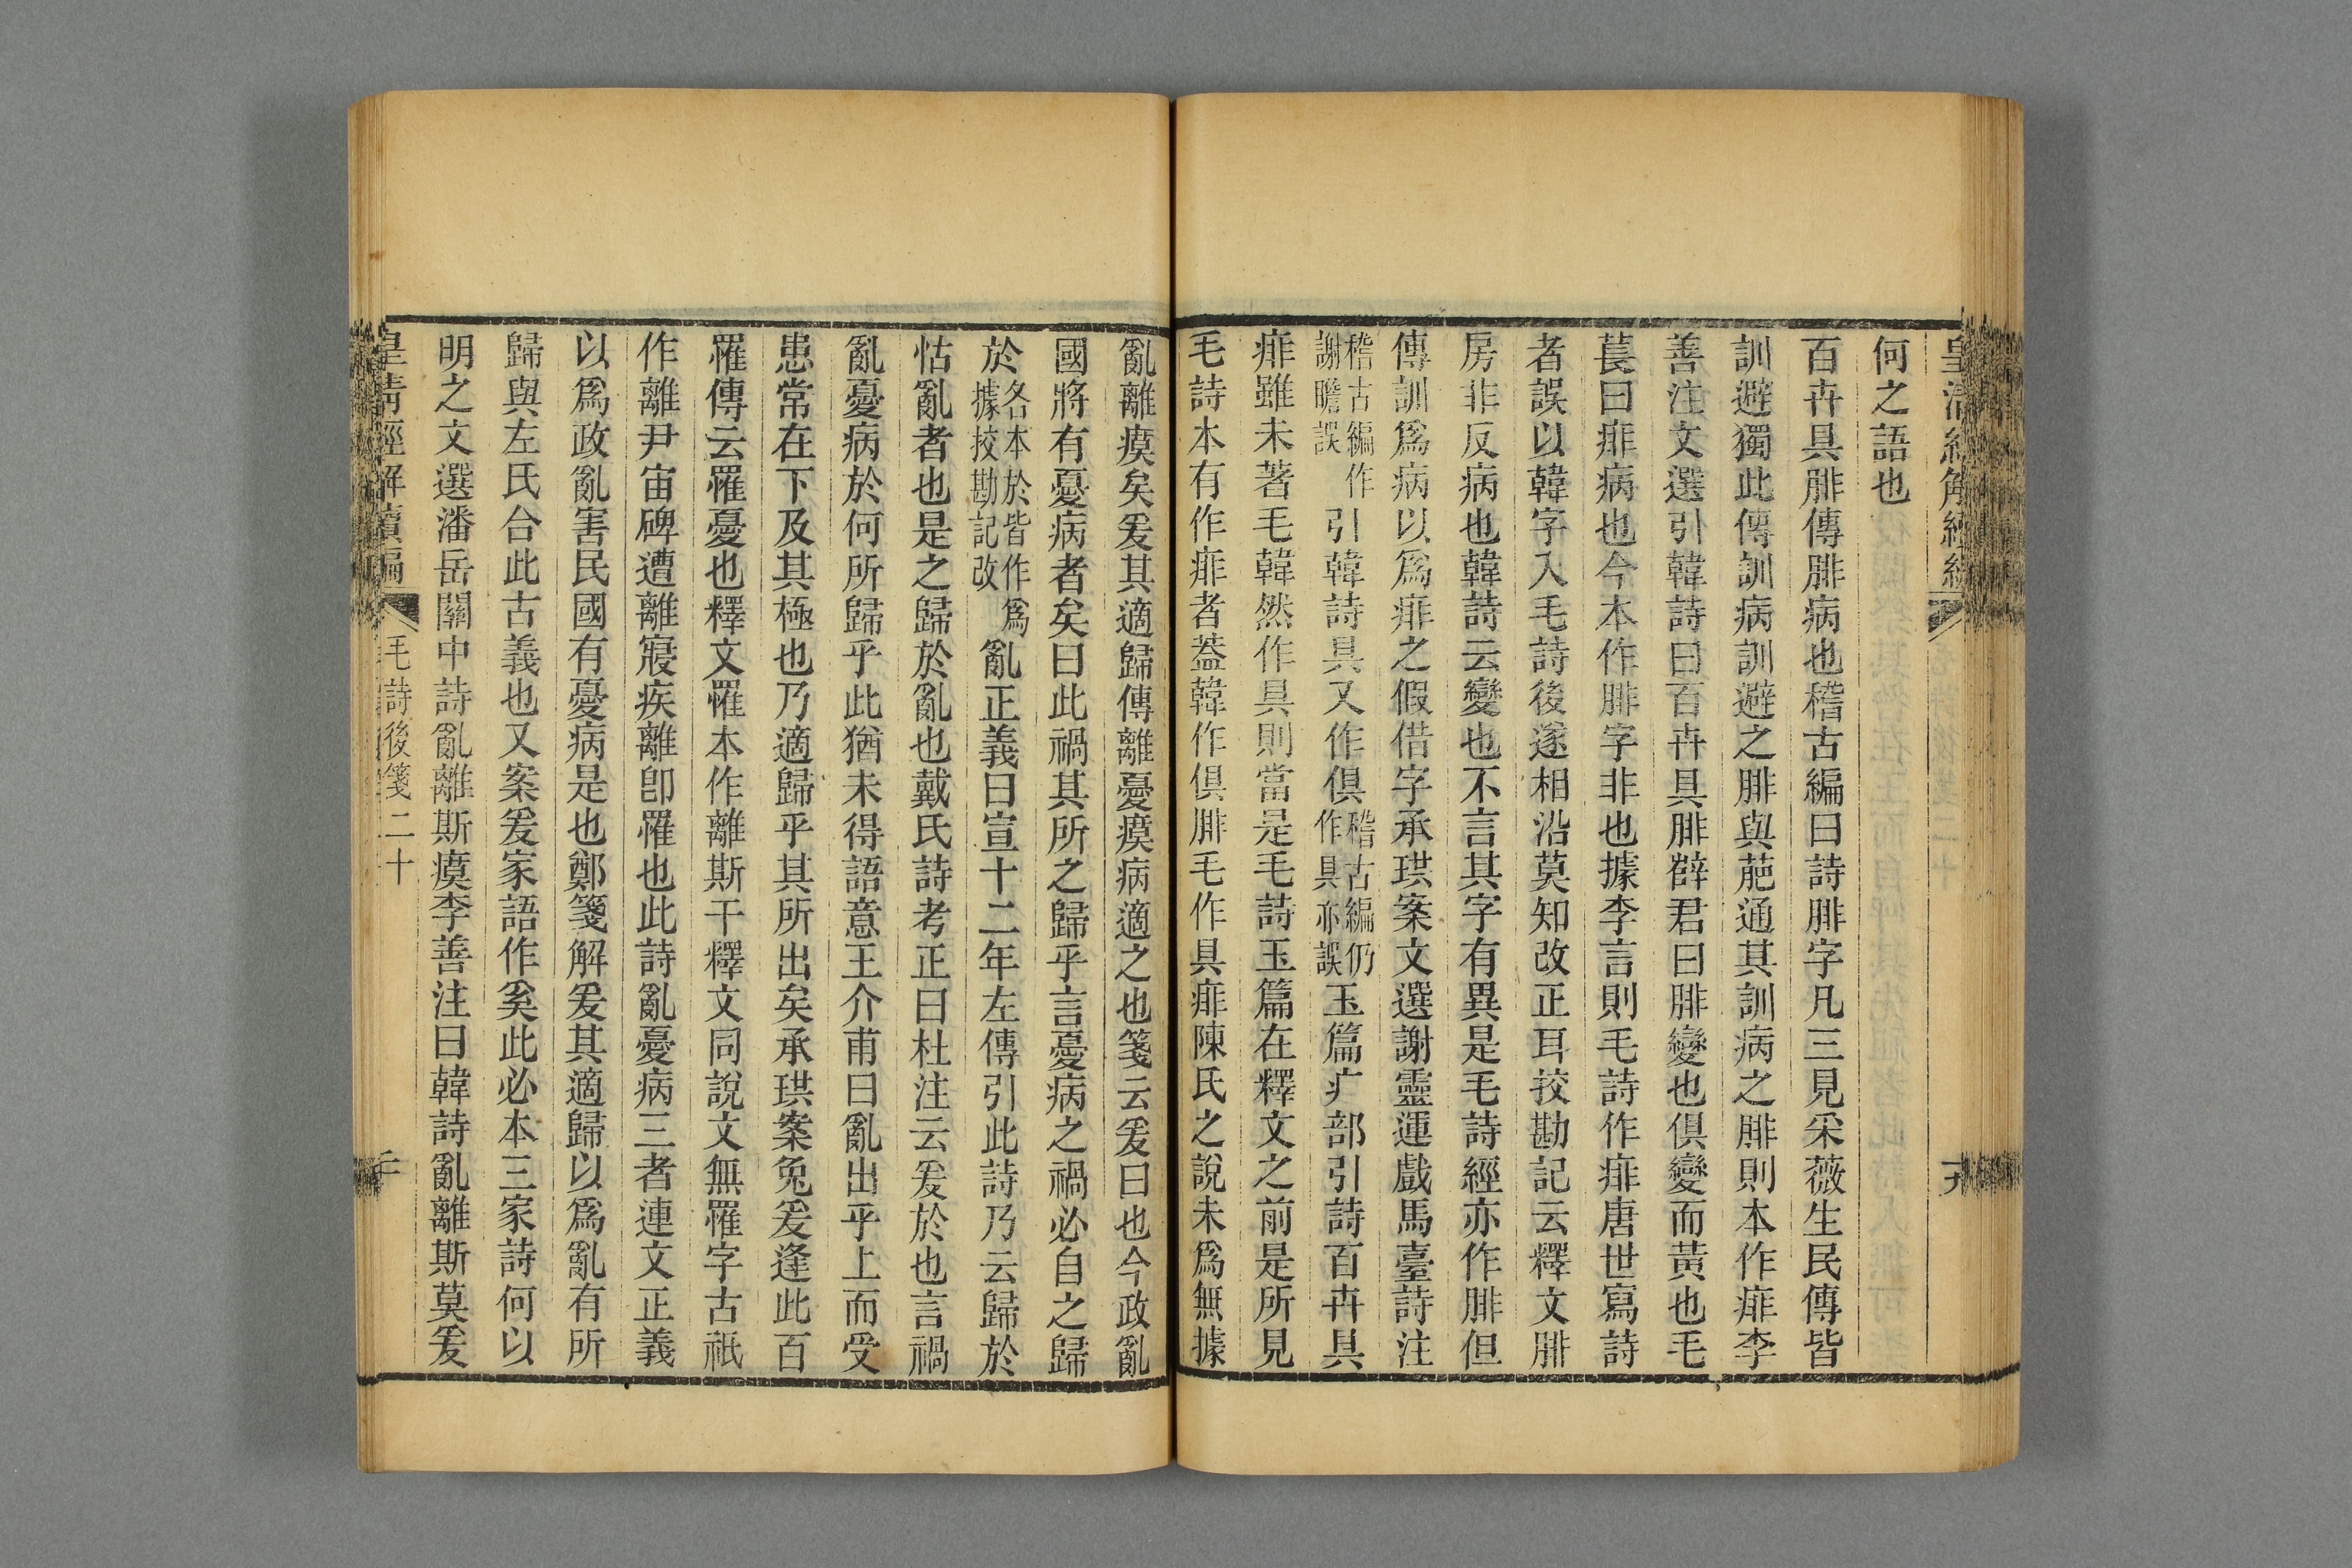 何之語也
百卉具腓傳腓病也稽古編曰詩腓字凡三見采薇生民傳皆
訓避獨此傳訓病訓避之腓與萉通其訓病之腓則本作痱李
善注文選引韓詩曰百卉具腓薛君曰腓變也俱變而黃也毛
萇曰痱病也今本作腓字非也據李言則毛詩作痱唐世寫詩
者誤以韓字入毛詩後遂相沿莫知改正耳挍勘記云釋文腓
房非反病也韓詩云變也不言其字有異是毛詩經亦作腓但
傳訓爲病以爲痱之假借字承珙案文選謝靈運戲馬臺詩注
稽古編作謝瞻誤引韓詩具又作俱稽古編仍作具亦誤玉篇疒部引詩百卉具
痱雖未著毛韓然作具則當是毛詩玉篇在釋文之前是所見
毛詩本有作痱者蓋韓作俱腓毛作具痱陳氏之說未爲無據
亂離瘼矣爰其適歸傳離憂瘼病適之也箋云爰曰也今政亂
國將有憂病者矣曰此禍其所之歸乎言憂病之禍必自之歸
於各本於皆作爲據挍勘記改亂正義曰宣十二年左傳引此詩乃云歸於
怙亂者也是之歸於亂也戴氏詩考正曰杜注云爰於也言禍
亂憂病於何所歸乎此猶未得語意王介甫曰亂出乎上而受
患常在下及其極也乃適歸乎其所出矣承珙案兔爰逢此百
罹傳云罹憂也釋文罹本作離斯干釋文同說文無罹字古祇
作離尹宙碑遭離寢疾離卽罹也此詩亂憂病三者連文正義
以爲政亂害民國有憂病是也鄭箋解爰其適歸以爲亂有所
歸與左氏合此古義也又案爰家語作奚此必本三家詩何以
明之文選潘岳關中詩亂離斯瘼李善注曰韓詩亂離斯莫爰
皇清經解續編
毛詩後箋二十